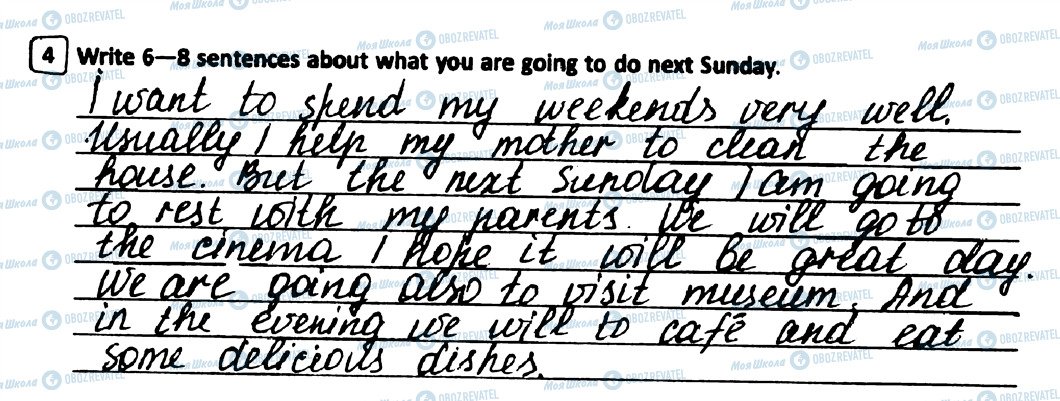 4 Write 6—8 sentences about what you are going to do next Sunday.
I want to spend my weekends very well.
Usually I help my mother to clean the
house. But the next Sunday I am going
to rest with my parents. We will go to
the cinema. I hope it will be great day.
We are going also to visit museum. And
in the evening we will to café and eat
some delicious dishes.